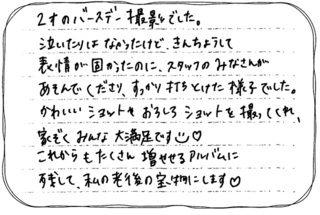 2才のバースデー撮影でした。
泣いたりはなかったけど、きんちょうして
表情が固かったのに、スタッフのみなさんが
あそんでくださり、すっかり打ちとけた様子でした。
かわいいショットやおもしろショットを撮ってくれ、
家ぞくみんな大満足です♡
これからもたくさん増やせるアルバムに
残して、私の老後の宝物にします♡